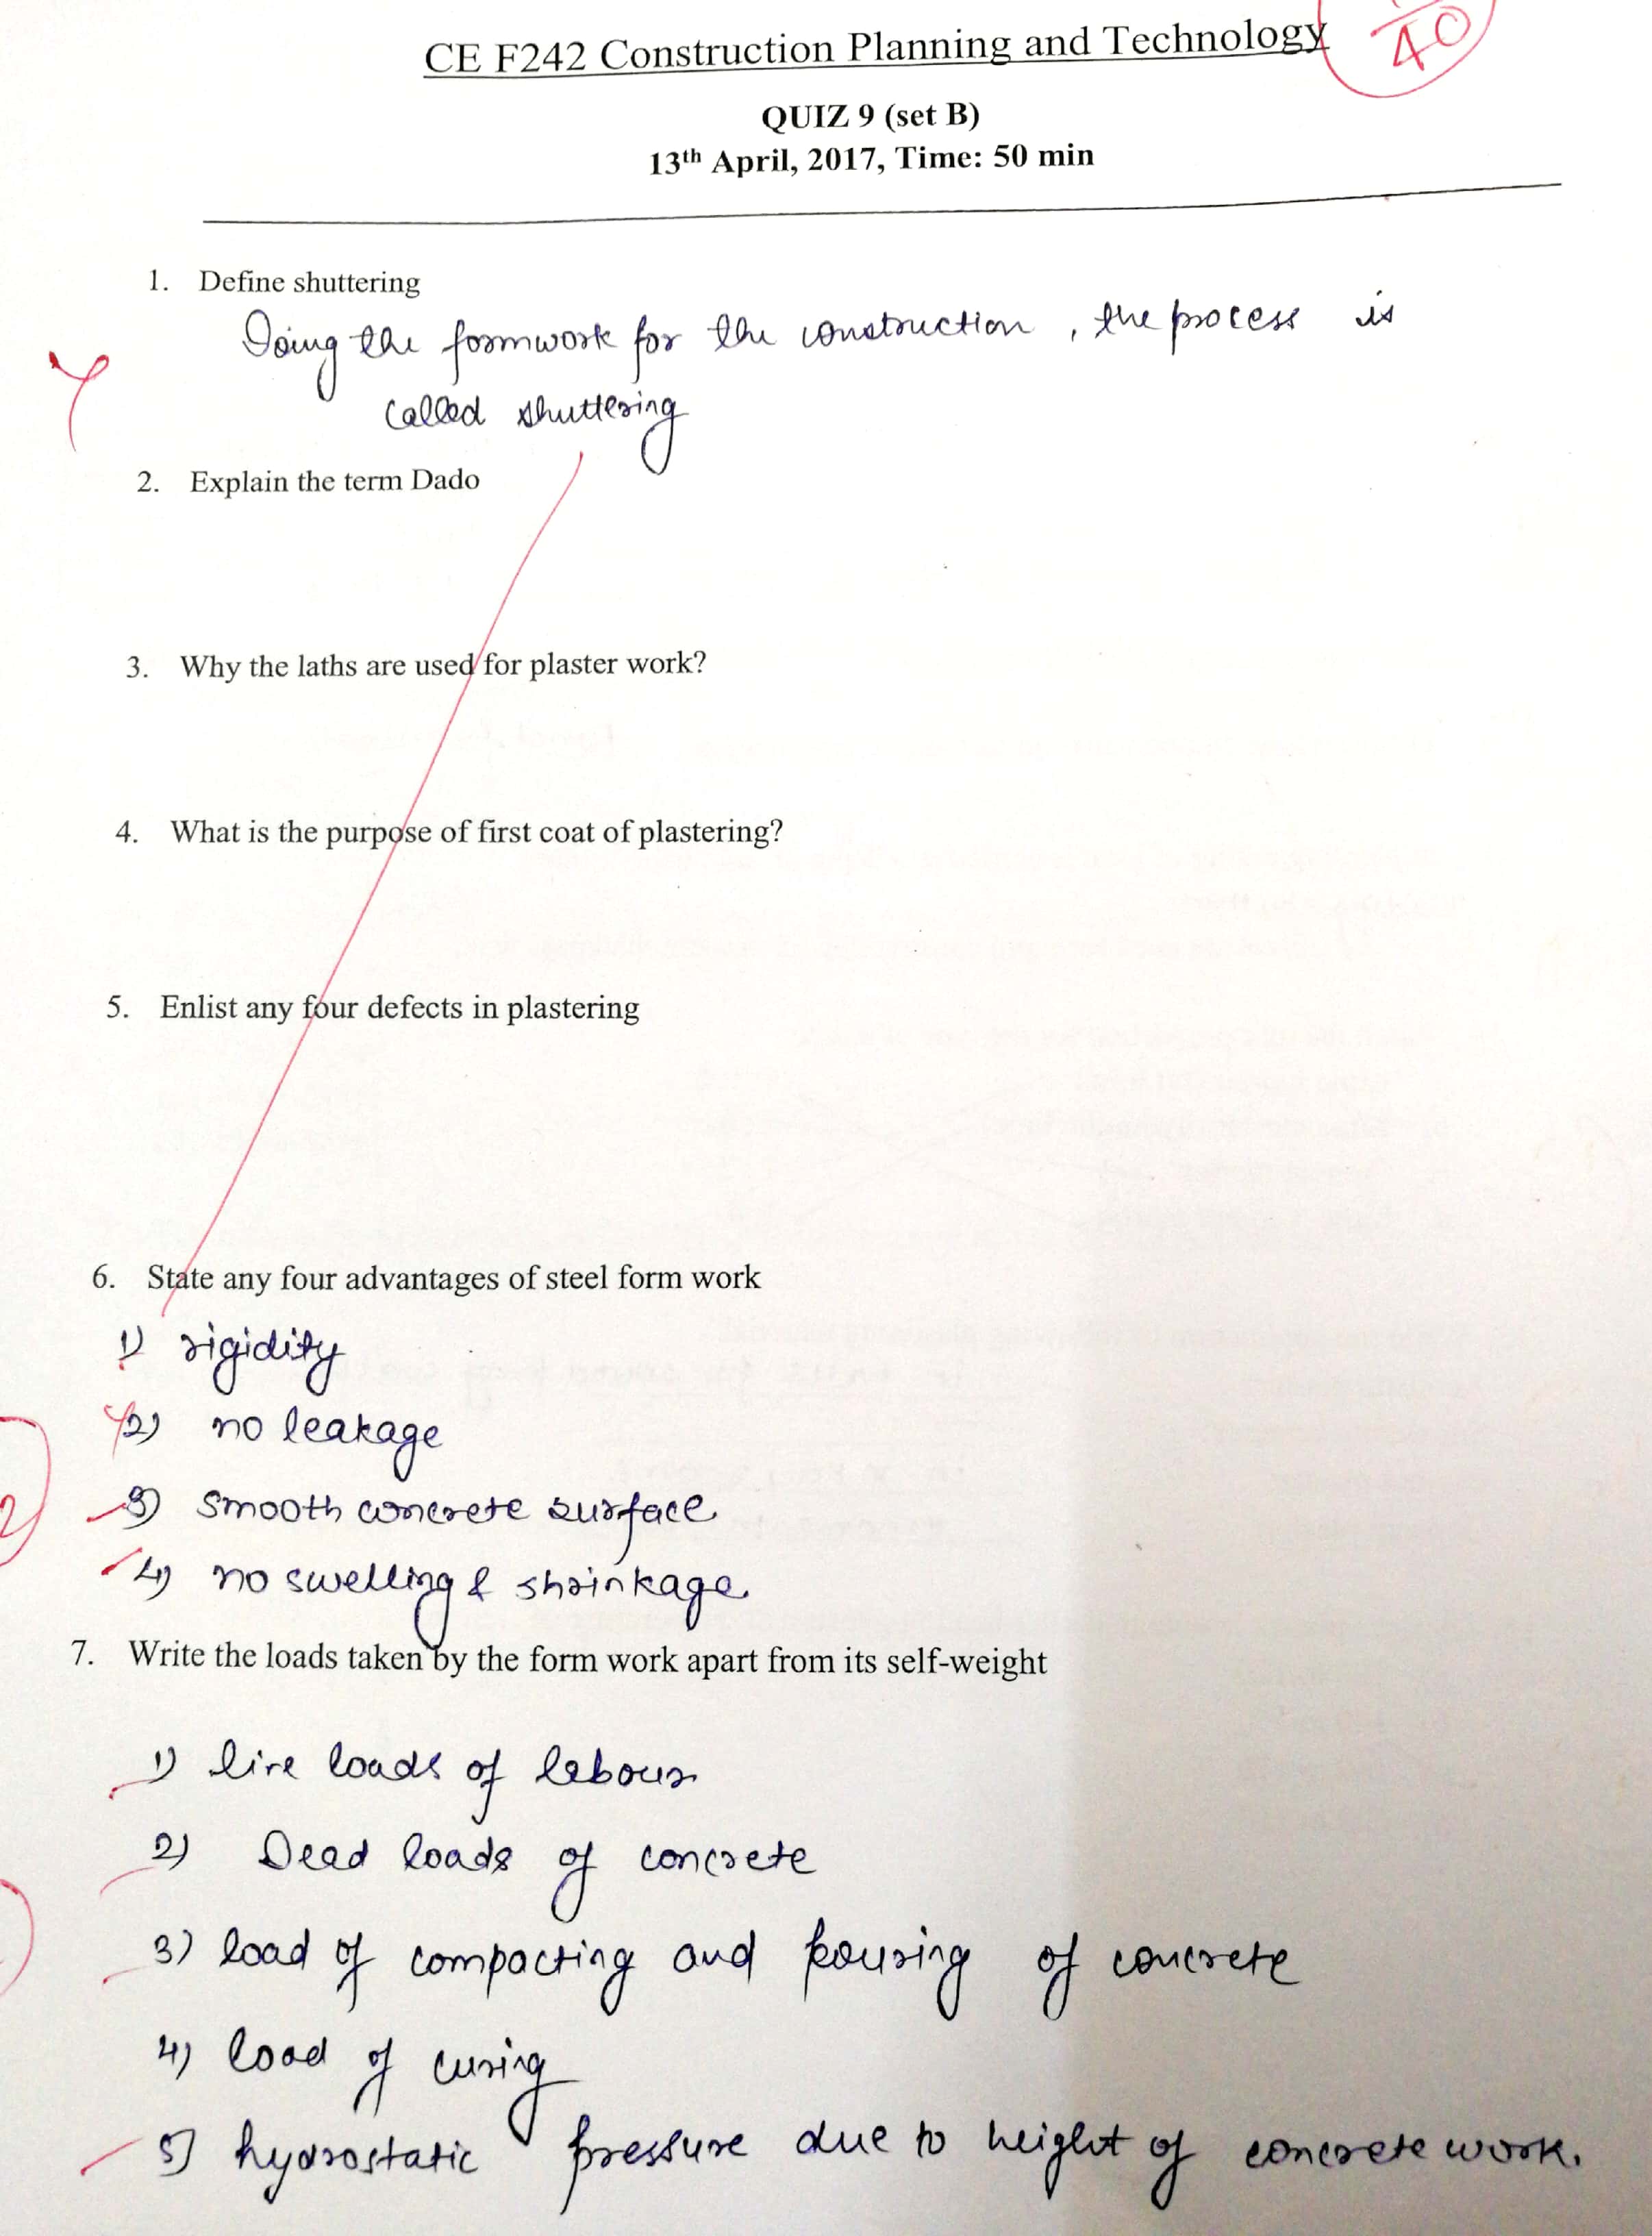 CE F242 Construction Planning and Technology
40
QUIZ 9 (set B)
13th April, 2017, Time: 50 min
1. Define shuttering
Doing the formwork for the construction, the process is
called shuttering
2. Explain the term Dado
3. Why the laths are used for plaster work?
4. What is the purpose of first coat of plastering?
5. Enlist any four defects in plastering
6. State any four advantages of steel form work
1) rigidity
2) no leakage
3) smooth concrete surface
4) no swelling & shrinkage
7. Write the loads taken by the form work apart from its self-weight
1) live loads of labour
2) Dead loads of concrete
3) load of compacting and pouring of concrete
4) load of curing
5) hydrostatic pressure due to height of concrete work.